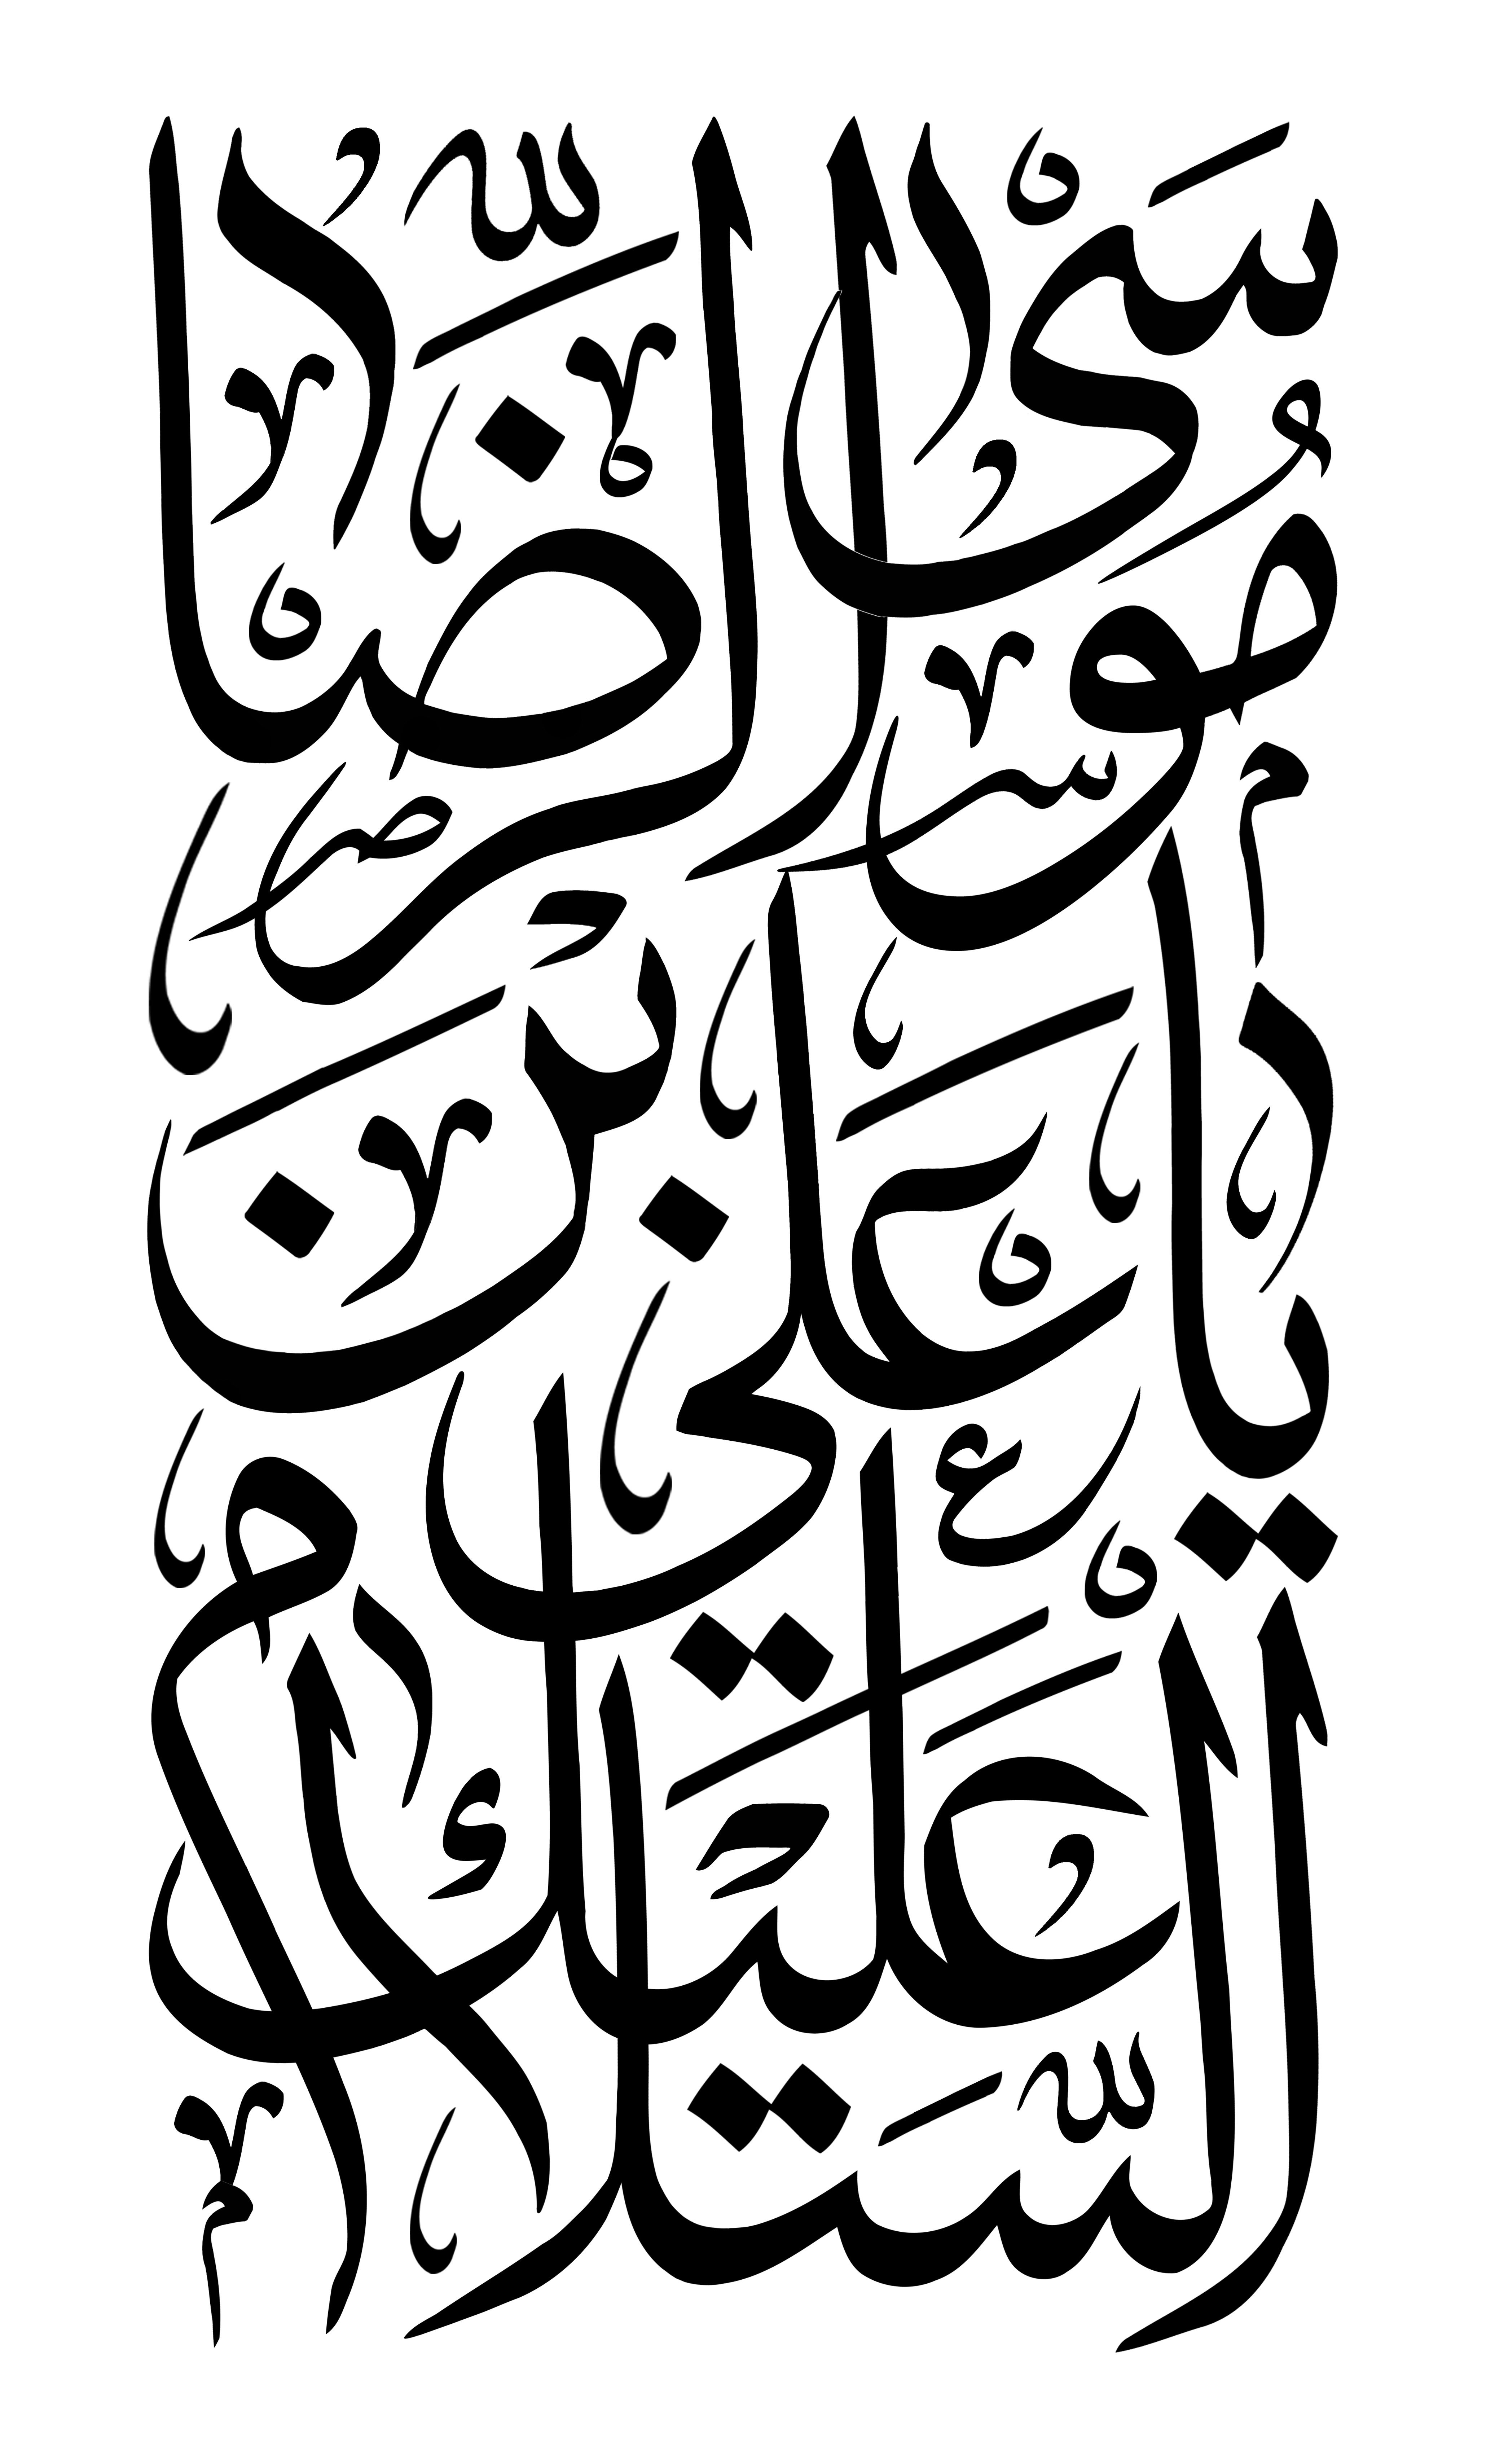 السلام عليك
يا علي بن
موسى الرضا